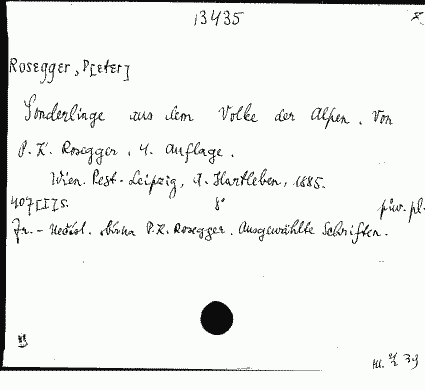 13435
Rosegger, P[eter]
Sonderlinge aus dem Volke der Alpen. Von
P. K. Rosegger. 4. Auflage.
Wien. Pest. Leipzig, A. Hartleben, 1885.
407[I]S. 8° pův. pl.
Fr. - P.K. Rosegger. Ausgewählte Schriften.
39